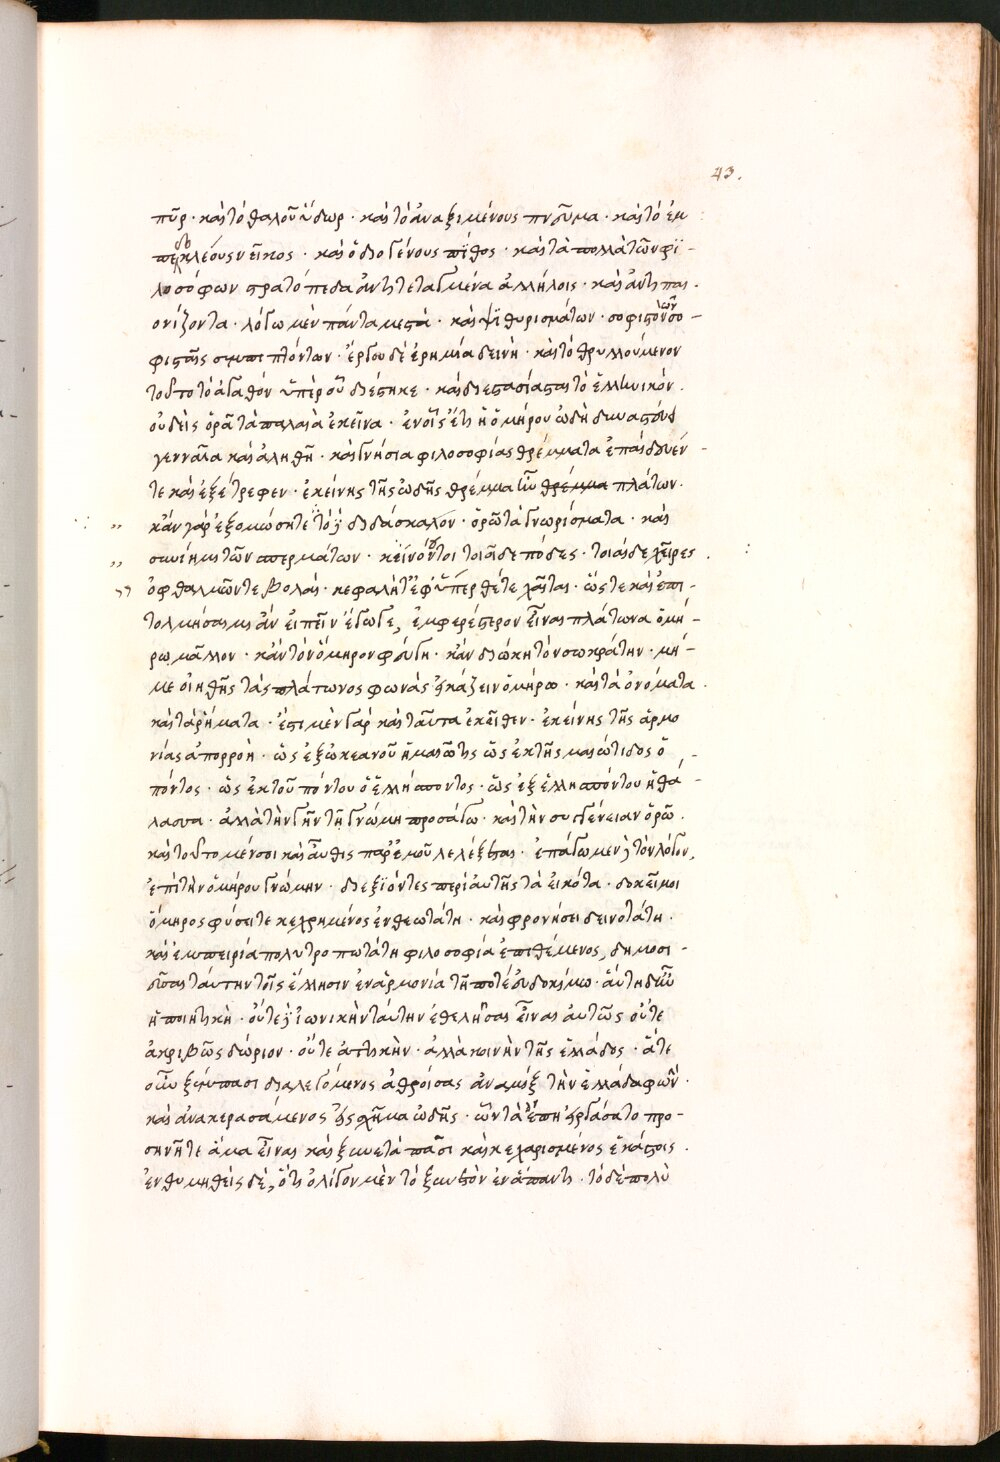 43.
πῦρ · καὶ τὸ θαλοῦ ὕδωρ · καὶ τὸ ἀναξιμένους πνεῦμα · καὶ τὸ ἐμ
πεδοκλέους νεῖκος · καὶ ὁ διογένους πίθος · καὶ τὰ πολλὰ τῶν φϊ -
λοσόφων στρατόπεδα ἀντιτεταγμένα ἀλλήλοις · καὶ ἀντιπαι -
ονίζοντα · λόγω μὲν πάντα μεστὰ · καὶ ψϊθυρισμάτων · σοφιστῶν σο -
φισταῖς συμπιπτόντων · ἔργου δὲ ἐρημία δεινὴ · καὶ τὸ θρυλλούμενον
τοῦτο τὸ ἀγαθόν ὑπὲρ οὗ διέστηκε · καὶ διεστασίασται τὸ ἑλληνικόν .
οὐδεὶς ὁρᾶ τὰ παλαιὰ ἐκεῖνα · ἐν οἷς ἔτι ἡ ὁμήρου ὠδὴ δυναστεύει
γενναῖα καὶ ἀληθῆ · καὶ γνήσια φιλοσοφίας θρέμματα ἐπαίδευέν -
τε καὶ ἐξέτρεφεν · ἐκείνης τῆς ὠδῆς θρέμμα ἦν θρέμμα πλάτων .
κἂν γὰρ ἐξομώσητέ τὸν διδάσκαλον · ὁρῶ τὰ γνωρίσματα · καὶ
συνίημι τῶν σπερμάτων · κείνου τοι τοιοίδε πόδες · τοιαίδε χεῖρες .
ὀφθαλμῶν τε βολαί · κεφαλή τ' ἐφύπερθέ τε χαῖται · ὥστε καὶ ἐπι -
τολμήσαιμι ἂν εἰπεῖν ἔγωγε, ἐμφερέστερον εἶναι πλάτωνα ὁμή -
ρω μᾶλλον · κἂν τὸν ὅμηρον φεύγη · κἂν διώκη τὸν σωκράτην · μή -
με οἰηθῆς τὰς πλάτωνος φωνὰς εἰκάζειν ὁμήρω · καὶ τὰ ὀνόματα .
καὶ τὰ ῥήματα · ἔστι μὲν γάρ καὶ ταῦτα ἐκεῖθεν · ἐκείνης τῆς ἁρμο
νίας ἀπορροὴ · ὡς ἐξ ὠκεανοῦ ἡ μαιῶτις ὡς ἐκ τῆς μαιώτιδος ὁ
πόντος · ὡς ἐκ τοῦ πόντου ὁ ἑλλήσποντος · ὡς ἐξ ἑλλησπόντου ἡ θά -
λασσα · ἀλλὰ τὴν γῆν τῆ γνώμη προσάγω · καὶ τὴν συγγένειαν ὁρῶ .
καὶ τοῦτο μέν σοι καὶ αὖθις παρ' ἐμοῦ λελέξεται · ἐπάγωμεν τὸν λόγον,
ἐπὶ τὴν ὁμήρου γνώμην · διεξϊόντες περὶ αὐτῆς τὰ εἰκότα · δοκεῖ μοι
ὅμηρος φύσει τε κεχρημένος ἐνθεωτάτη · καὶ φρονήσει δεινοτάτη .
καὶ ἐμπειρία πολυτροπωτάτη φιλοσοφία ἐπιθέμενος, δημοσι -
εῦσαι ταύτην τοῖς ἕλλησιν ἐν ἁρμονία τῆ ποτὲ εὐδοκίμω · αὕτη δ' ἦν
ἡ ποιητικὴ · οὔτε ἰωνικὴν ταύτην ἐθελήσας εἶναι αὐτῶς οὔτε
ἀκριβῶς δώριον · οὔτε ἀττικὴν · ἀλλὰ κοινὴν τῆς ἑλλάδος · ἅτε
οὖν ξύμπασι διαλεγόμενος ἀθροίσας ἀναμὶξ τὴν ἑλλάδα φωνὴν .
καὶ ἀνακερασάμενος εἰς σχῆμα ὠδῆς · ὧν τὰ ἔπη εἰργάσατο προ -
σηνῆ τε ἅμα εἶναι καὶ ξυνετὰ πᾶσι καὶ κεχαρισμένος ἑκάστοις .
ἐνθυμηθεὶς δὲ, ὅτι ὀλίγον μὲν τὸ ξυνετὸν ἐν ἅπαντι · τὸ δὲ πολὺ